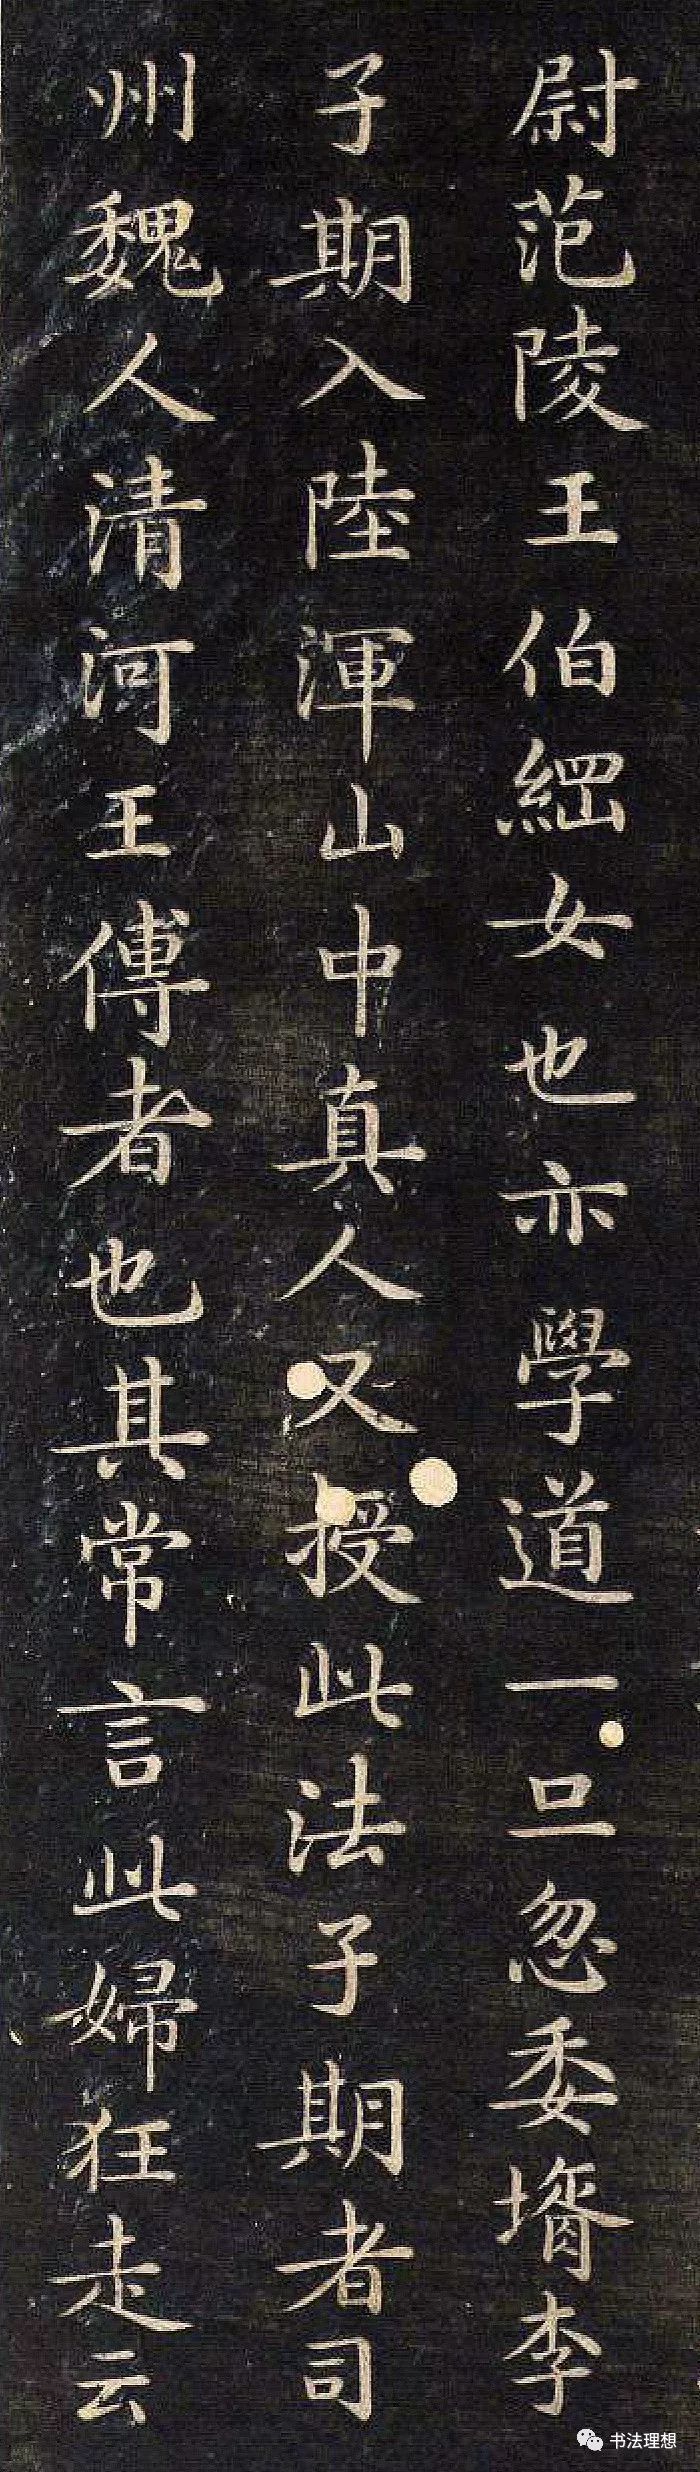 尉范陵王伯綱女也亦學道一旦忽委壻李
子期入陸渾山中真人又授此法子期者司
州魏人清河王傅者也其常言此婦狂走云
书法理想